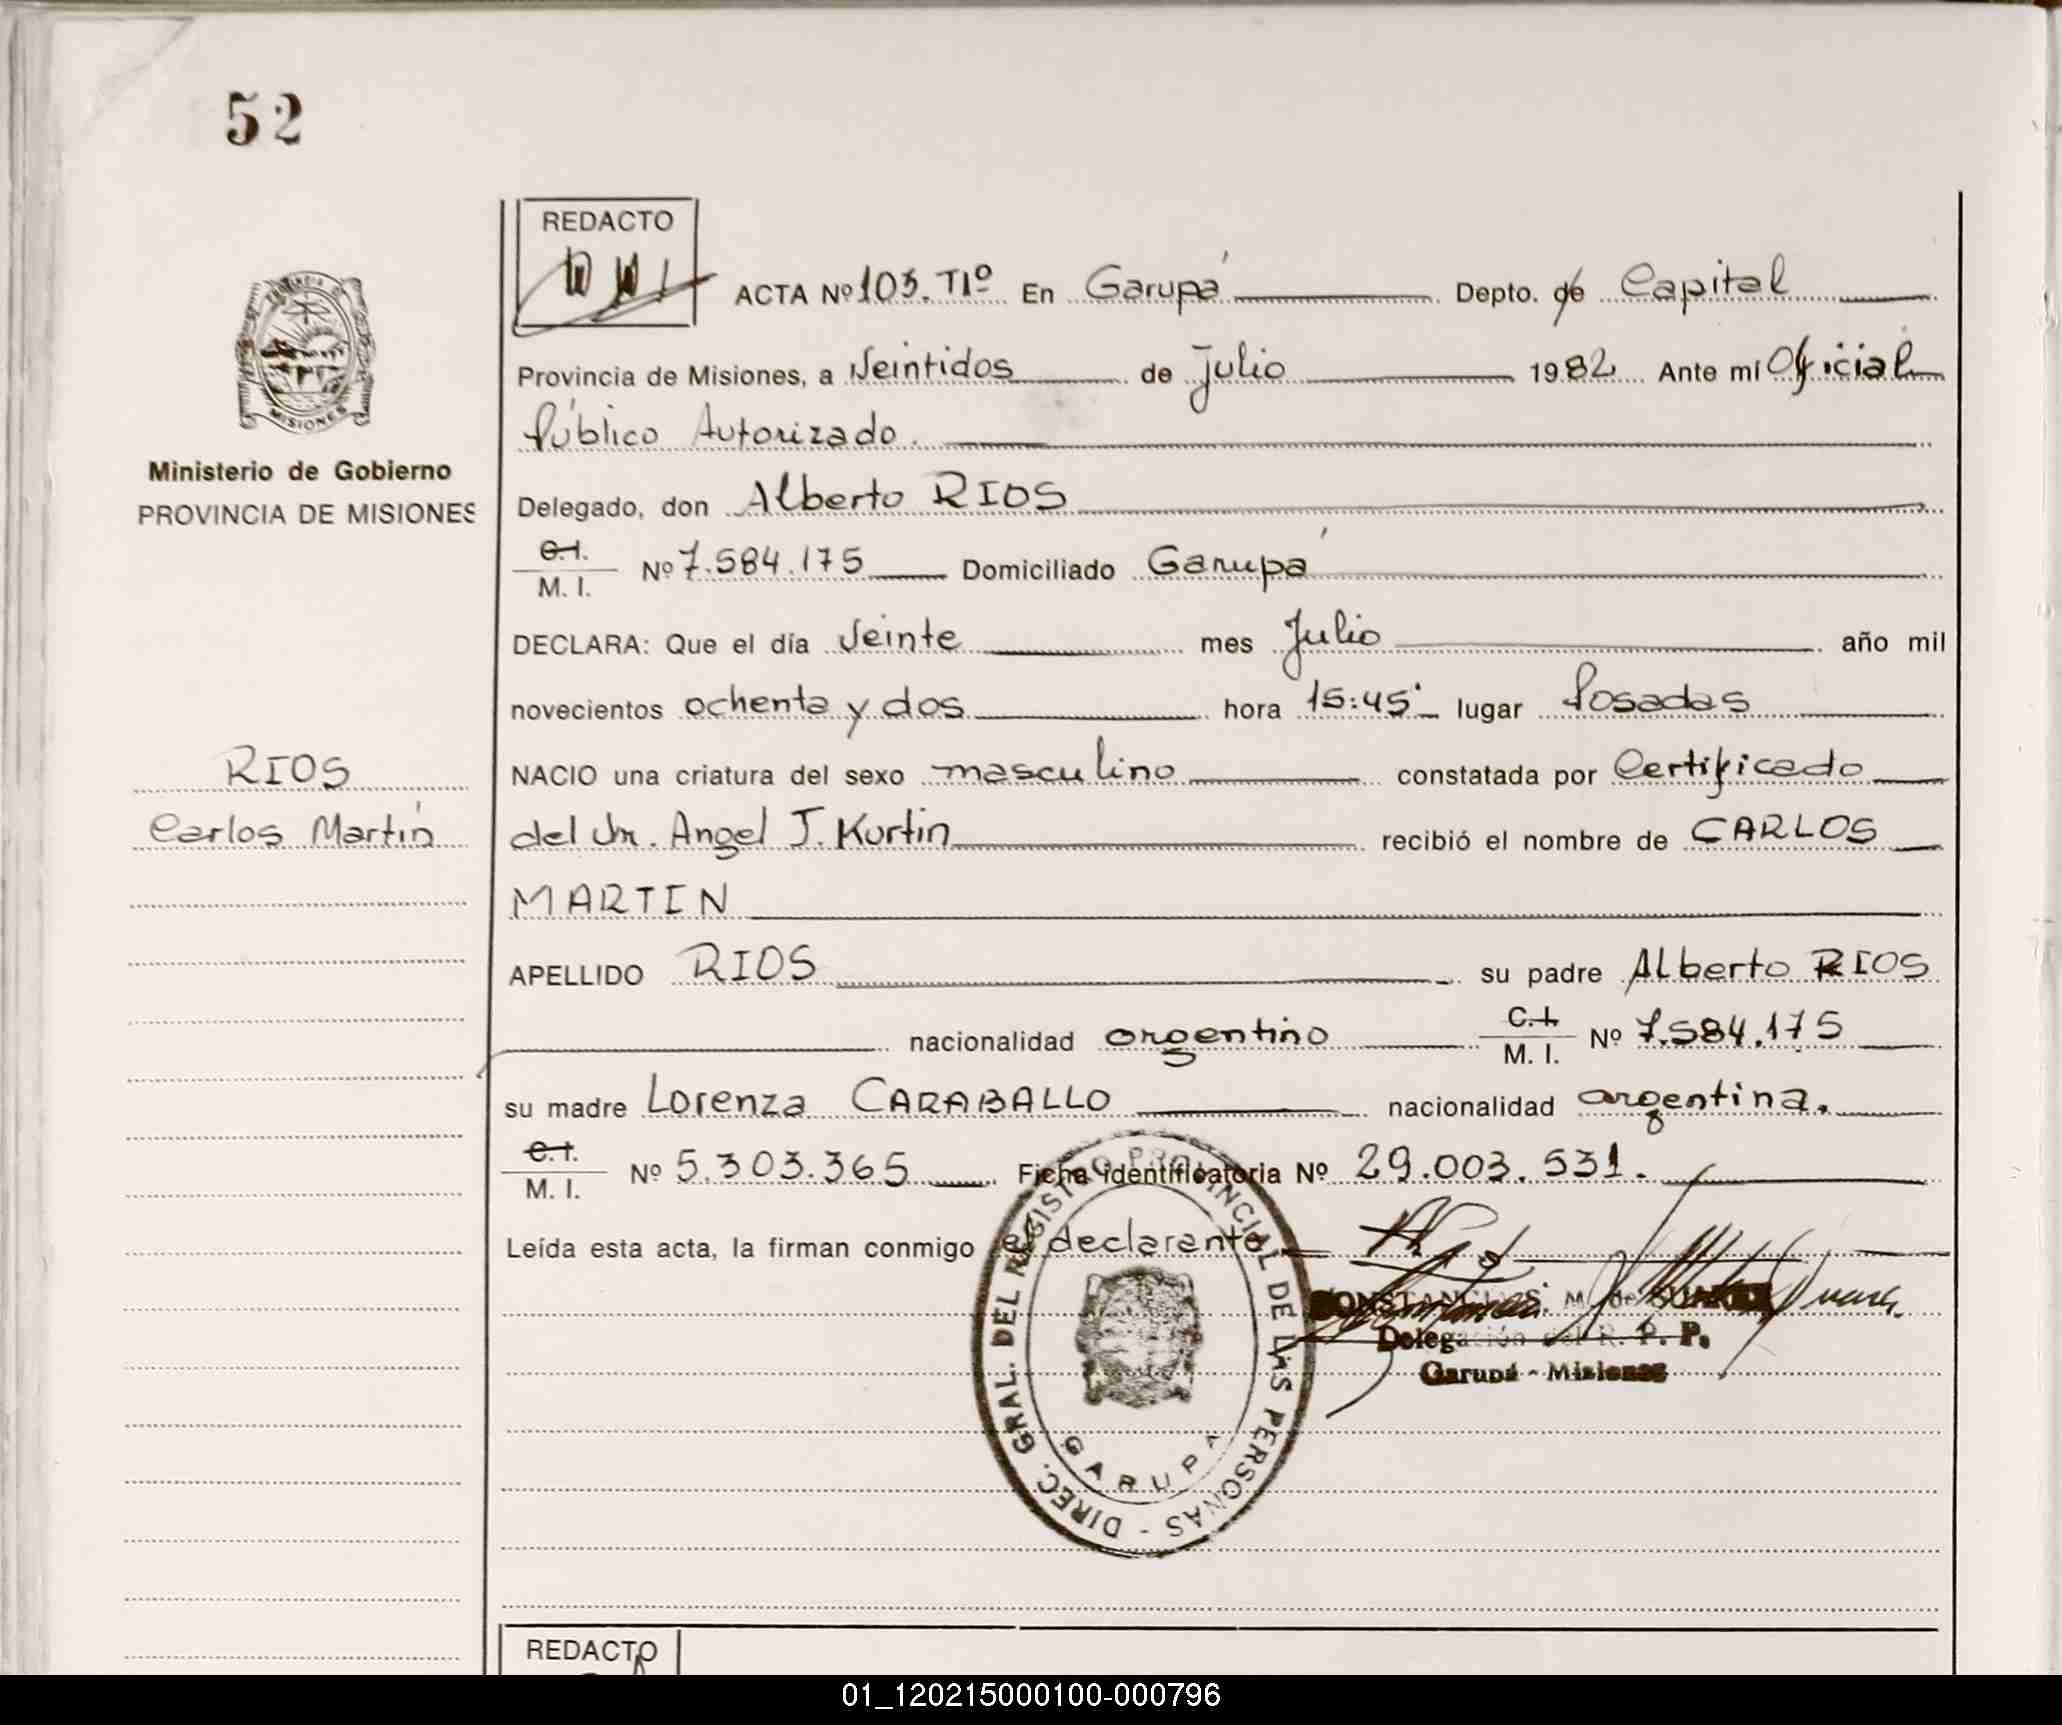 52
REDACTO
ACTA Nº 103. TIº En Garupá Depto. de Capital
Provincia de Misiones, a Veintidos de Julio 1982 Ante mí Oficial
Público Autorizado.
Ministerio de Gobierno
PROVINCIA DE MISIONES
Delegado, don Alberto RIOS
C.I.
M. I. Nº 7.584.175 Domiciliado Garupá
DECLARA: Que el día Veinte mes Julio año mil
novecientos ochenta y dos hora 15:45' lugar Posadas
RIOS
Carlos Martín
NACIO una criatura del sexo masculino constatada por Certificado
del Dr. Angel J. Kurtin recibió el nombre de CARLOS
MARTIN
APELLIDO RIOS su padre Alberto RIOS
nacionalidad argentino C.I.
M. I. Nº 7.584.175
su madre Lorenza CARABALLO nacionalidad argentina.
C.I.
M. I. Nº 5.303.365 Ficha identificatoria Nº 29.003.531.
Leída esta acta, la firman conmigo el declarante
DIREC. GRAL. DEL REGISTRO PROVINCIAL DE LAS PERSONAS -
GARUPA
M. de SUAREZ
Delegación del R. P. P.
Garupá - Misiones
REDACTO
01_120215000100-000796